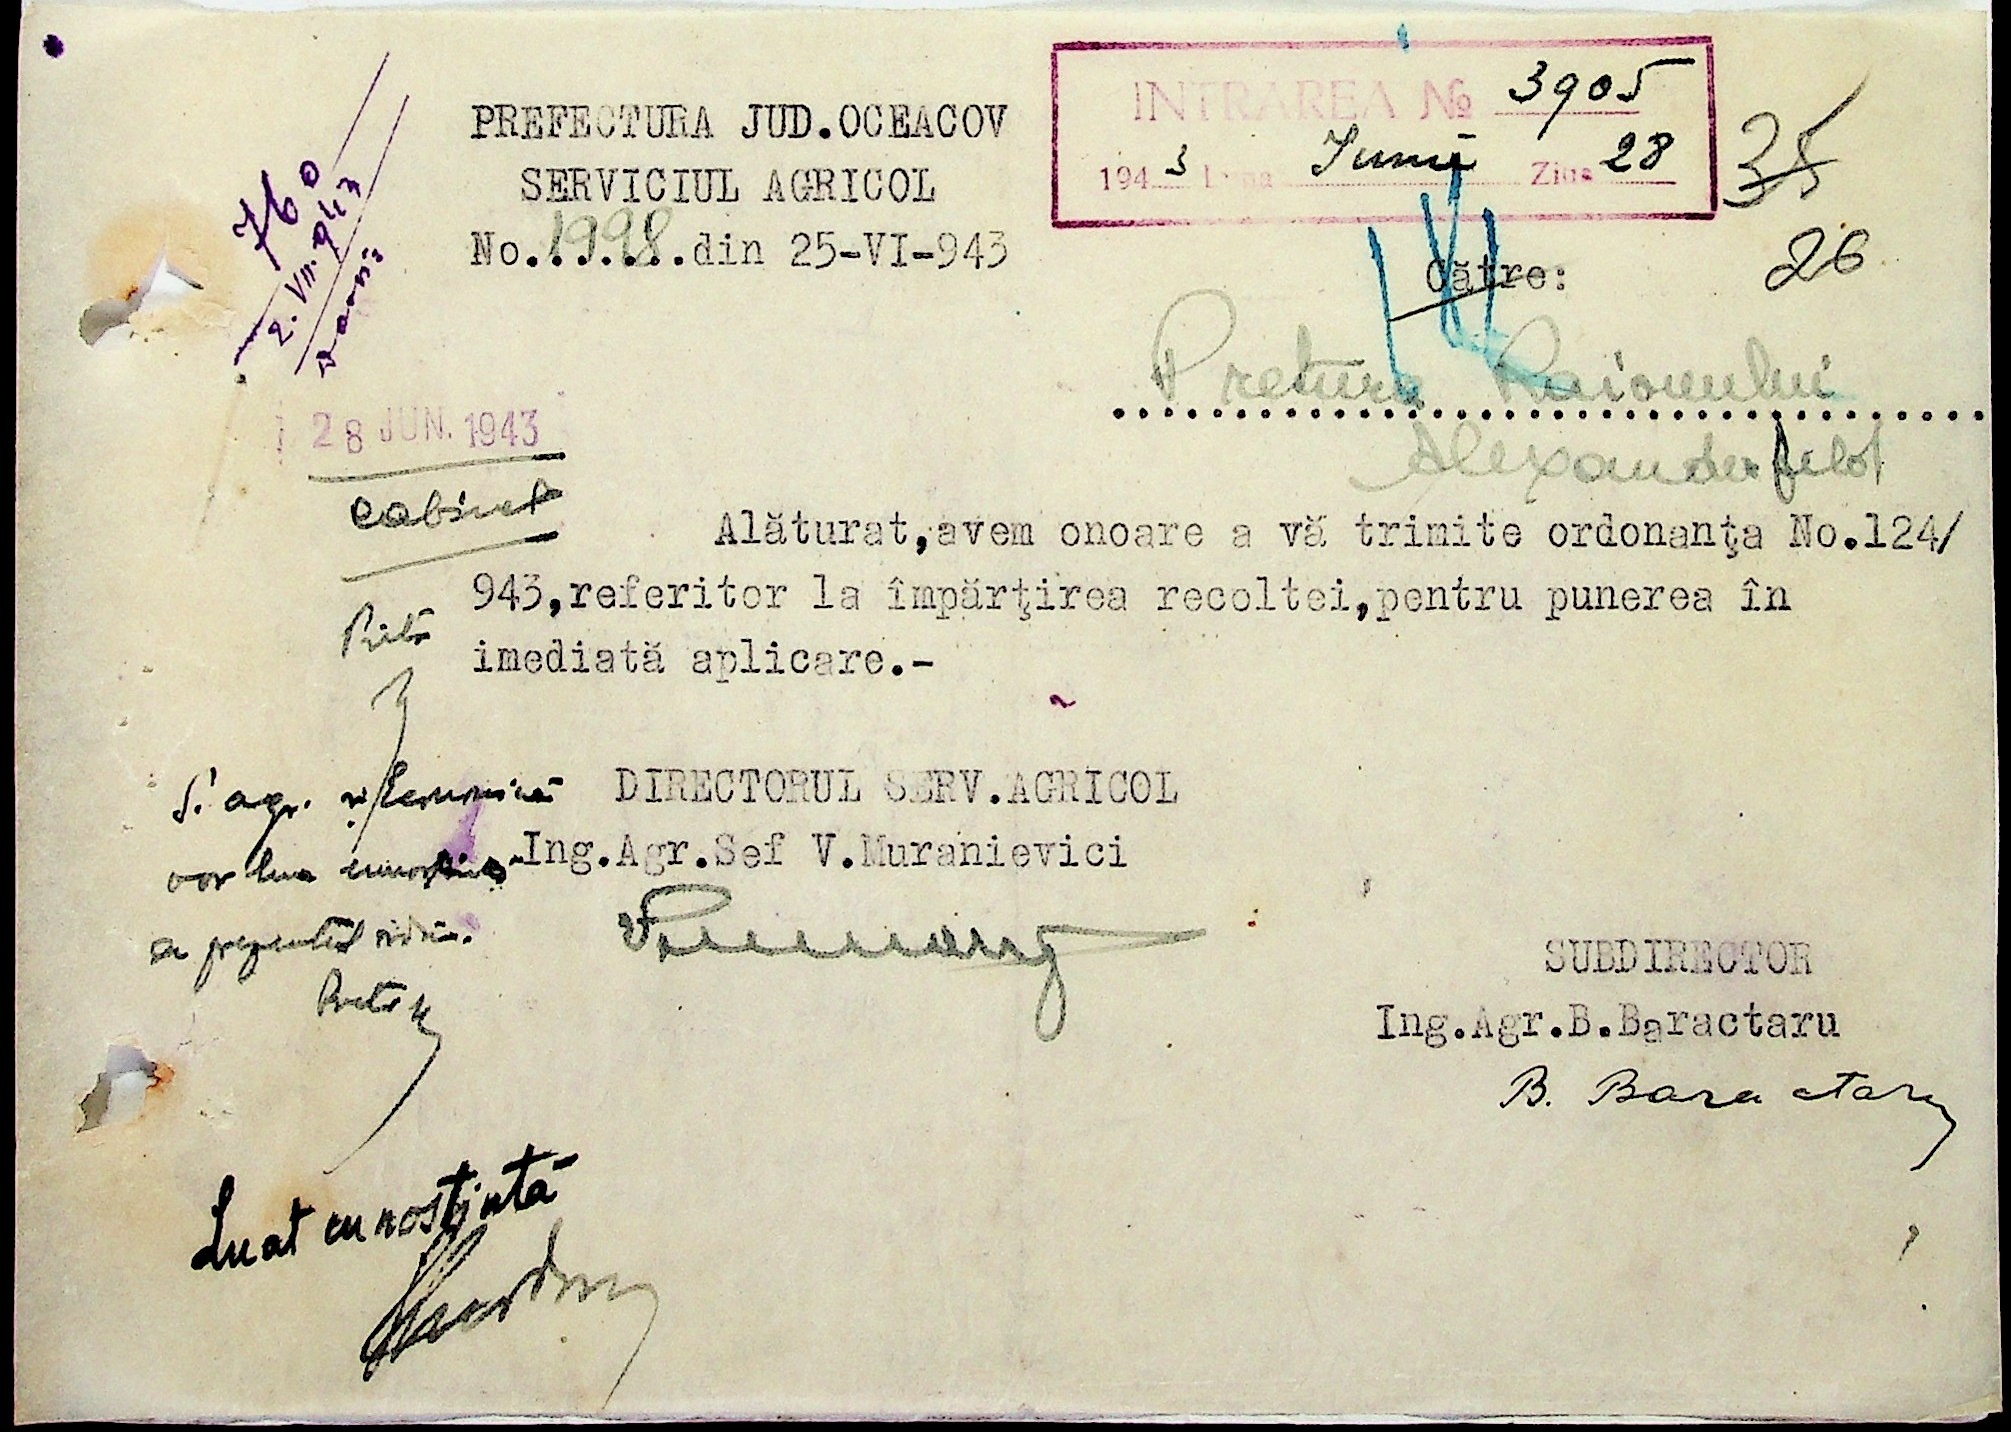 PREFECTURA JUD.OCEACOV
SERVICIUL AGRICOL
No.1998.din 25-VI-943
INTRAREA № 3905
1943 Luna Iunie Ziua 28
35
26
760
2.VII.943
Către:
Pretura Raionului
Alexanderfeld
28 JUN. 1943
cabinet
Alăturat,avem onoare a vă trimite ordonanţa No.124/
943,referitor la împărţirea recoltei,pentru punerea în
imediată aplicare.-
DIRECTORUL SERV.AGRICOL
Ing.Agr.Sef V.Muranievici
S. agr. şi
vor lua
Pretor
SUBDIRECTOR
Ing.Agr.B.Baractaru
B. Baractaru
Luat cunoştinţă